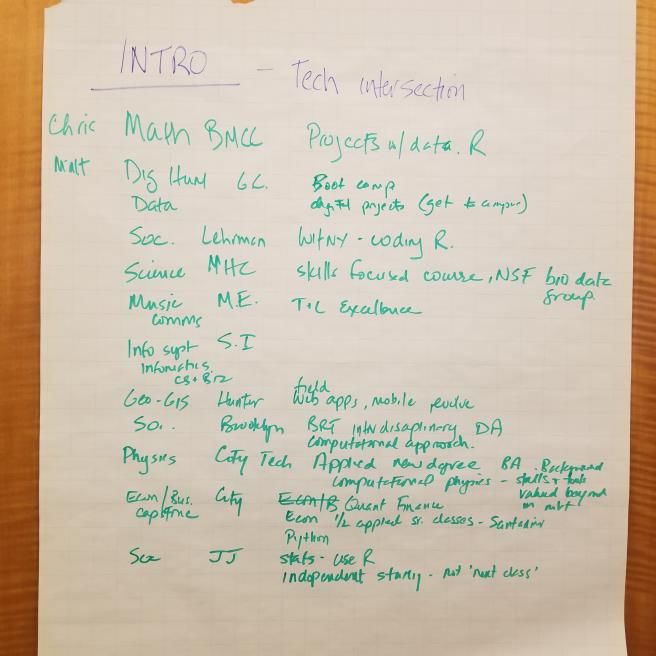 INTRO - Tech intersection
Chric Math BMCC Projects w/ data. R
Dig Hum GC. Boot camp
Data digital projects (get to campus)
Soc. Lehman WITNY - coding R.
Science MHC skills focused course, NSF bio data
group
Music M.E. T+L Excellence
Comms
Info syst S.I
Informatics.
CS + Biz
field
Geo-GIS Hunter Web apps, mobile
Soc. Brooklyn BRT interdisaplinary DA
computational approach.
Physics City Tech Applied new degree BA. Background
computational physics - skills + tools
valued beyond
Econ/Bus. City Econ/B Quant Finance
capstone
Econ 1/2 applied sr. classes -
Python
JJ stats - use R
independent study - not 'next class'